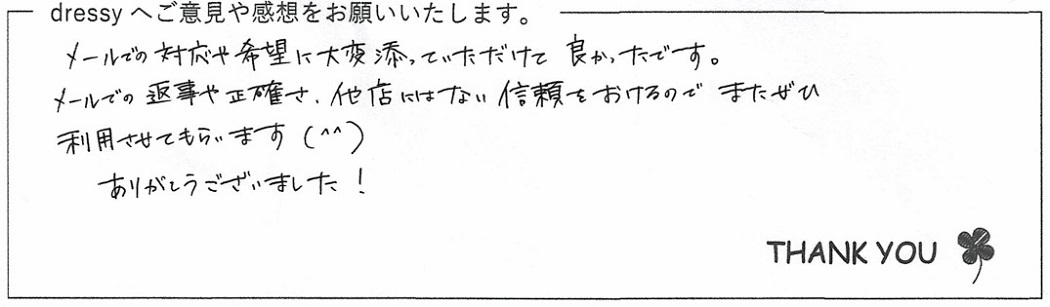 dressy へご意見や感想をお願いいたします。
メールでの対応や希望に大変添っていただけて 良かったです。
メールでの 返事や正確さ、他店にはない 信頼をおけるので またぜひ
利用させてもらいます (^^)
ありがとうございました!
THANK YOU